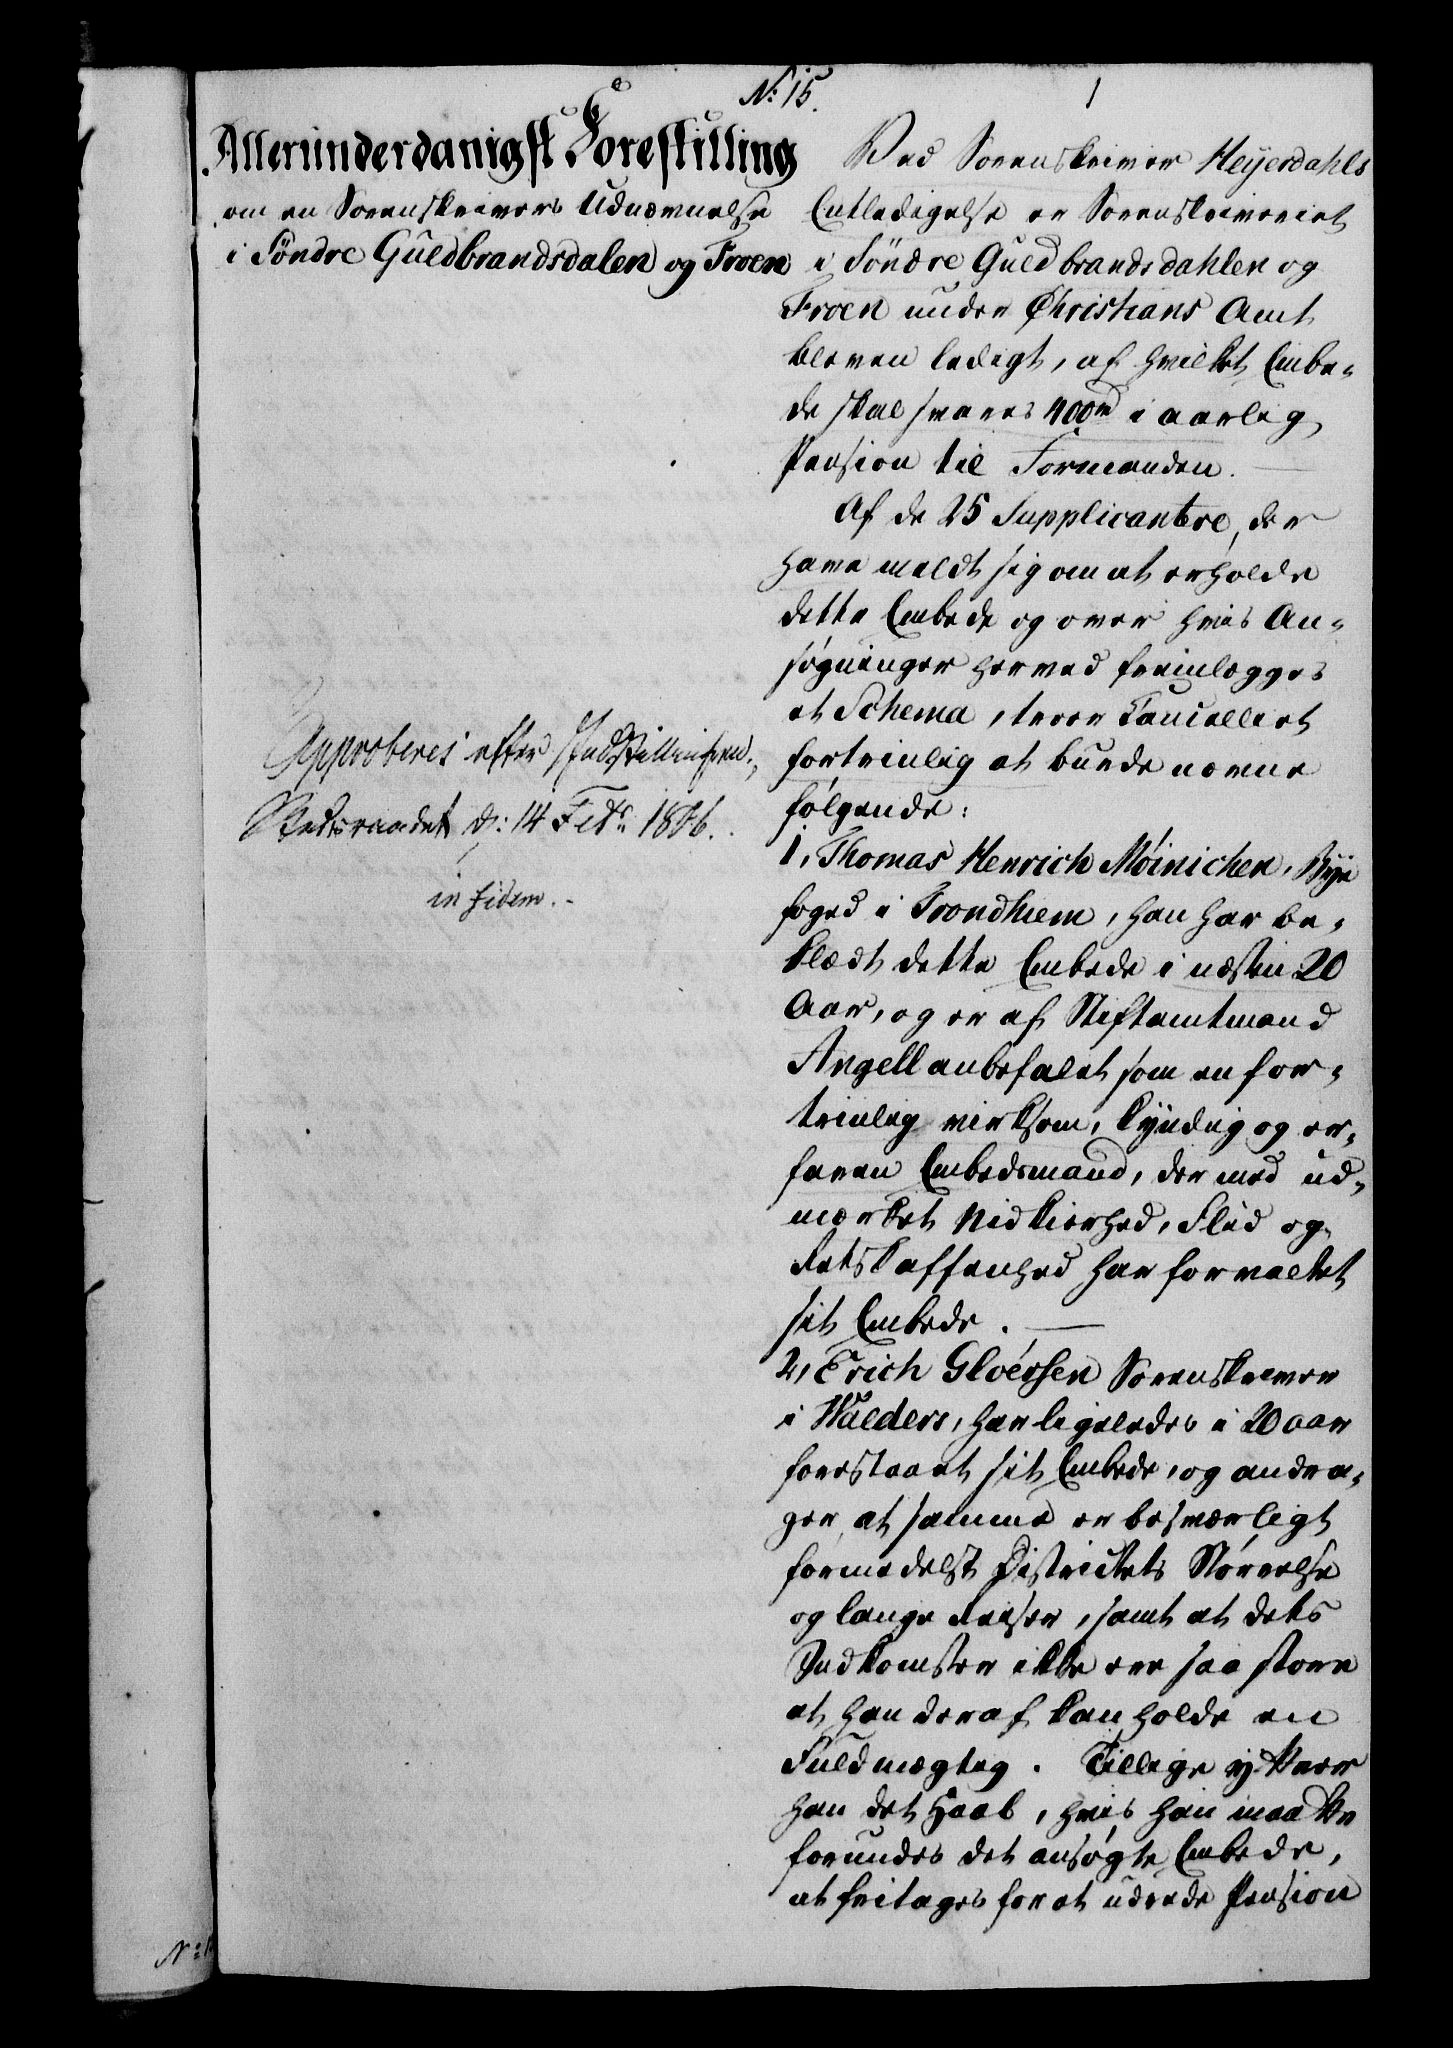 No: 15.
1
Allerunderdanigst Forestilling
om en Sorenskrivers Udnævnelse
i Söndre Guldbrandsdalen og Froen
Approberes efter Indstillingen.
Statsraadet d: 14 Febr. 1806.
in fidem.
Ved Sorenskriver Heÿerdahls
Entledigelse er Sorenskriveriet
i Söndre Guldbrandsdahlen og
Froen under Christians Amt
bleven ledigt, af hvilket Embe-
de skal svares 400rd i aarlig
Pension til Formanden.
Af de 25 Supplicantere, der
have meldt sig om at erholde
dette Embede og over hvis An-
søgninger herved fremlægges
et Schema, troer Cancelliet
fortrinlig at burde nævne
følgende:
1, Thomas Henrich Möinichen, Bye
foged i Trondhiem, han har be-
klædt dette Embede i næsten 20
Aar, og er af Stiftamtmand
Angell anbefalet som en for-
trinlig virksom, kÿndig og er-
faren Embedsmand, der med ud-
mærket Nidkierhed, Flid og
Retskaffenhed har forvaltet
sit Embede.
2, Erich Gloérsen Sorenskriver
i Walders, har ligeledes i 20 aar
forestaaet sit Embede, og andra-
ger, at samme er besværligt
formedelst Districtets Størrelse
og lange Reiser, samt at dets
Indkomster ikke ere saa store
at han deraf kan holde en
Fuldmægtig. Tillige ÿttrer
han det Haab, hvis han maatte
forundes det ansøgte Embede,
at fritages for at udrede Pension
No: